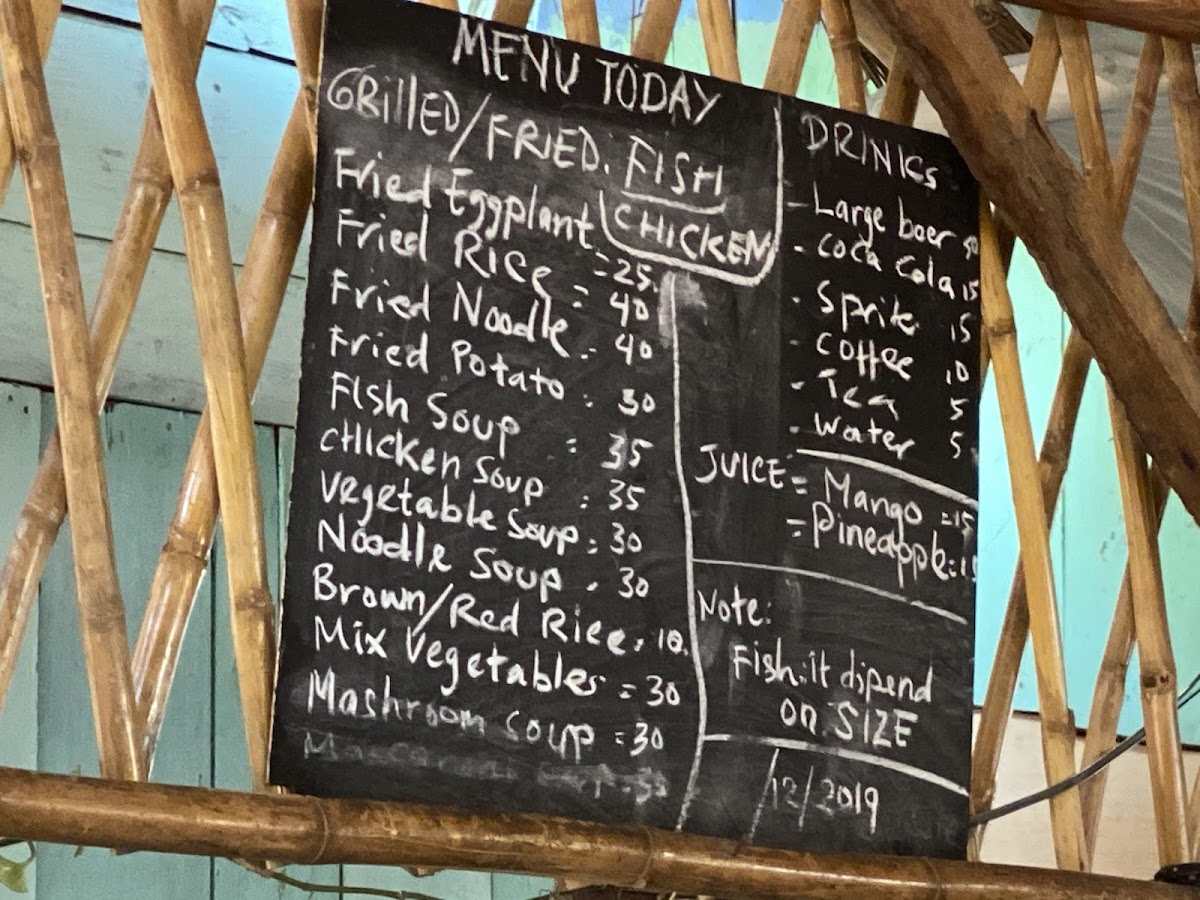 MENU TODAY
GRillED/FRIED. FISH
CHICKEN
Fried Eggplant = 25.
Fried Rice = 40
Fried Noodle. - 40
Fried Potato : 30
FIsh Soup : 35
CHICKen Soup : 35
Vegetable Soup : 30
Noodle Soup . 30
Brown/Red Rice. 10.
Mix Vegetables = 30
Mashroom Soup = 30
DRINKs
- Large beer
- Coca Cola 15
- Sprite 15
- Coffee 10
- Tea 5
- Water 5
JUICE = Mango =15
= Pineapple=15
Note:
Fish: it dipend
on SIZE
/12/2019